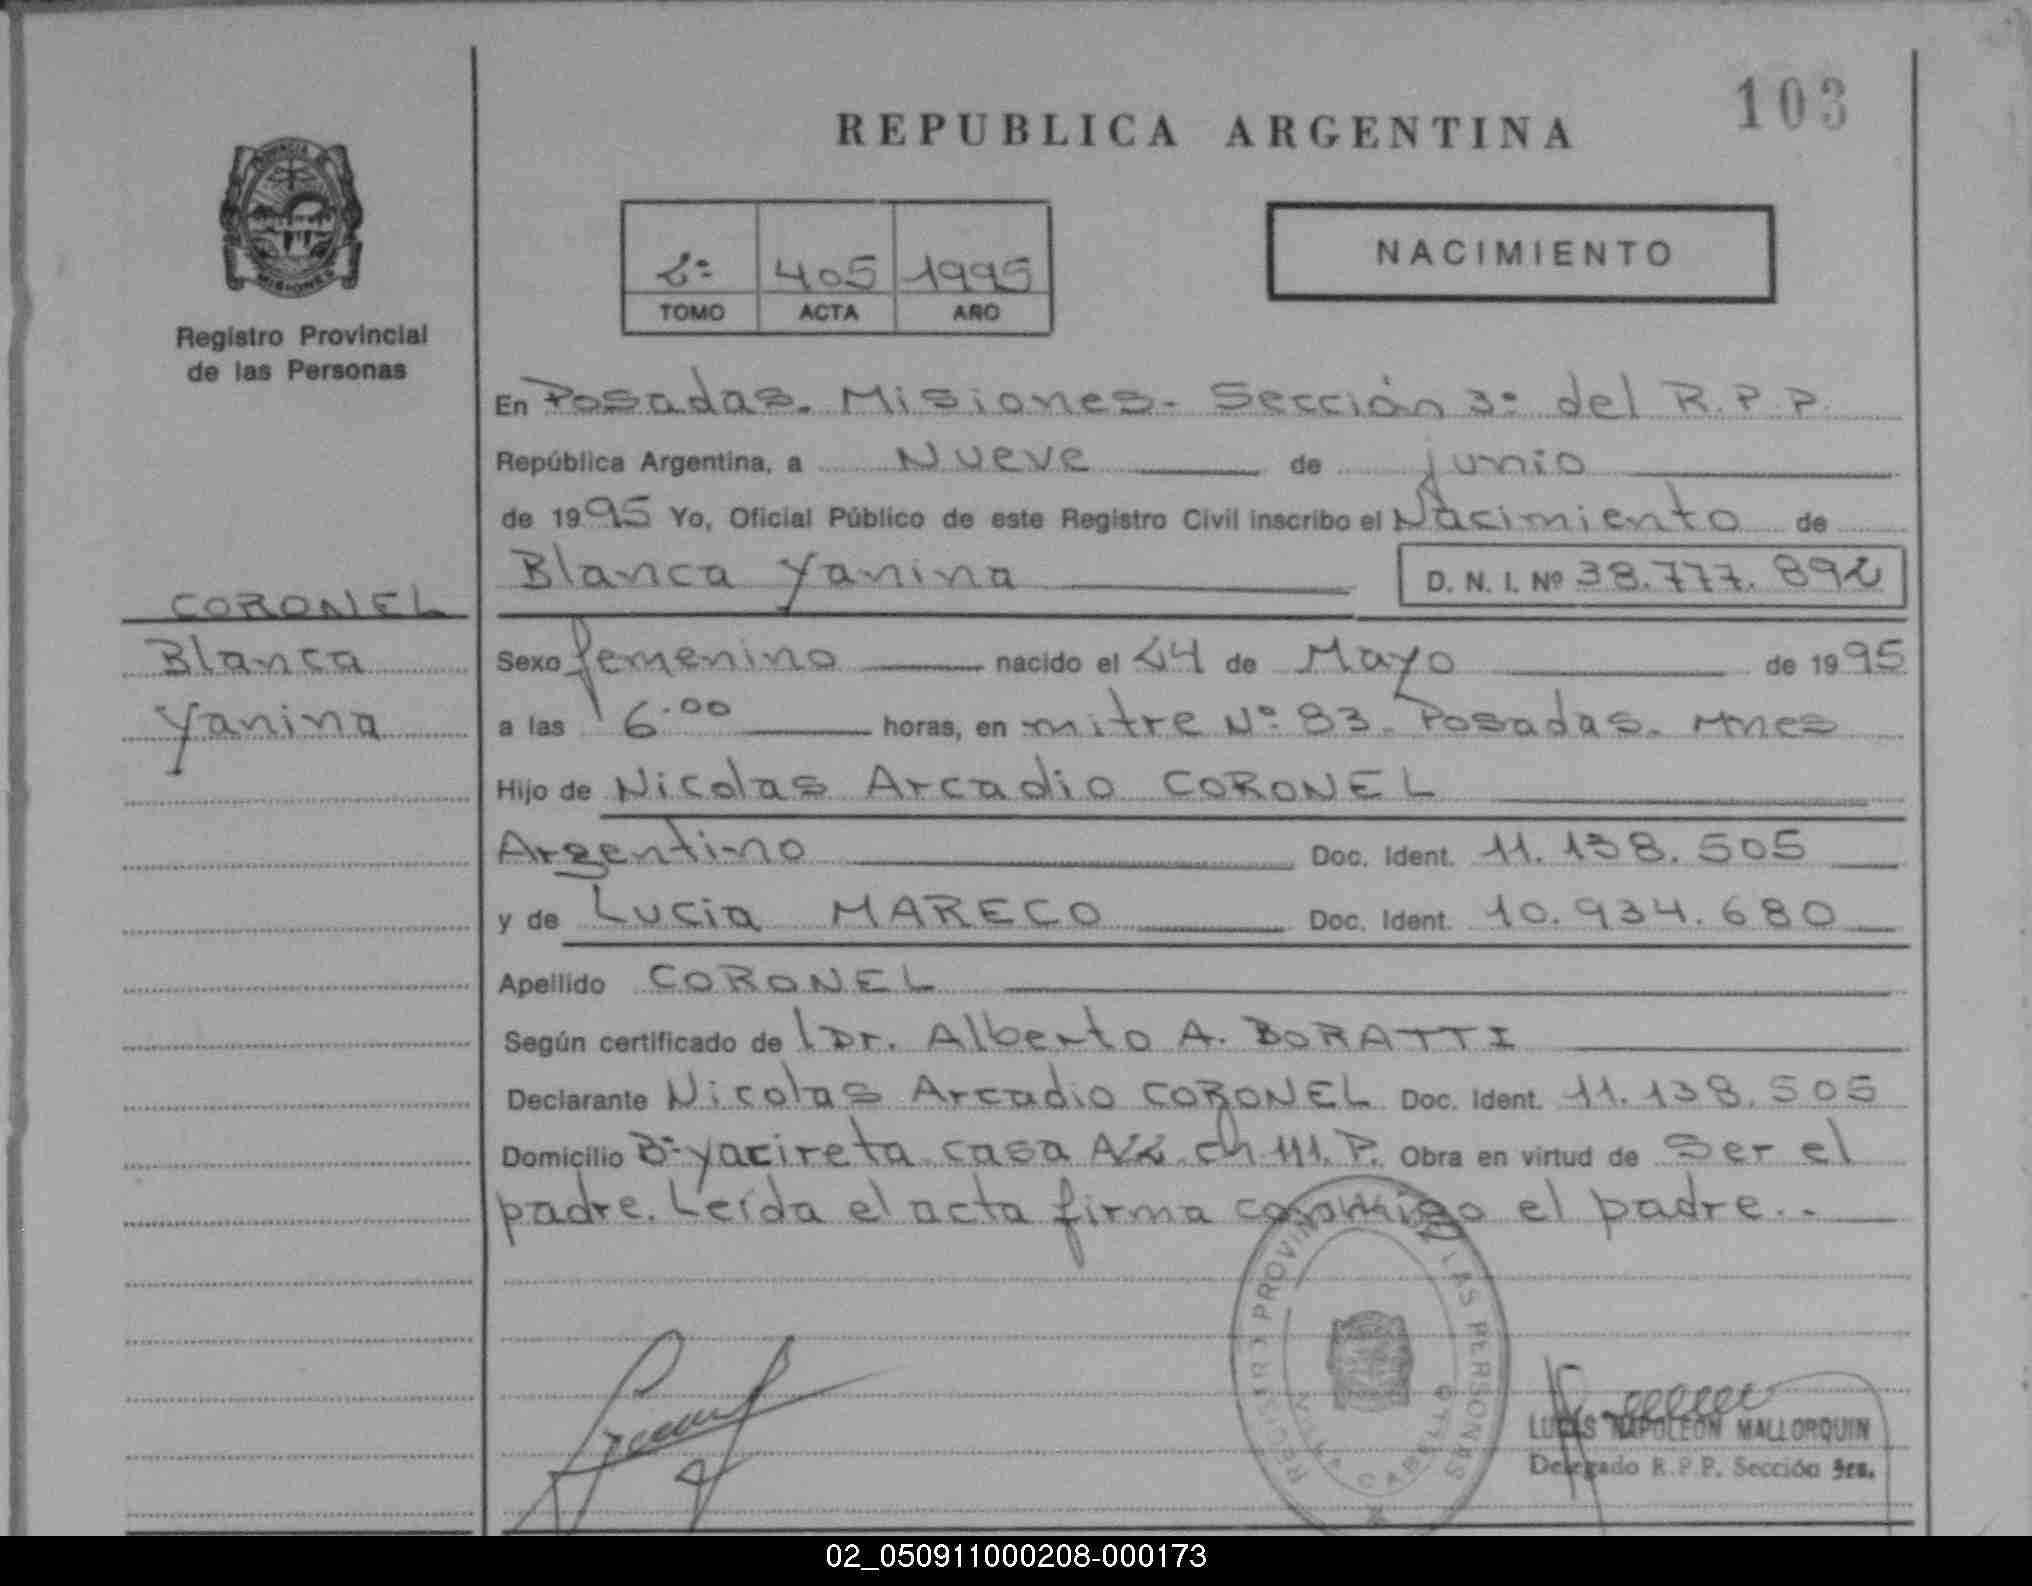 103
REPUBLICA ARGENTINA
PROVINCIA DE
MISIONES
Registro Provincial
de las Personas
2º 405 1995
TOMO ACTA AÑO
NACIMIENTO
En Posadas. Misiones- Sección 3º del R.P.P.
República Argentina, a Nueve de junio
de 1995 Yo, Oficial Público de este Registro Civil inscribo el Nacimiento de
Blanca Yanina D. N. I. Nº 38.777.892
CORONEL
Blanca
Yanina
Sexo femenino nacido el 24 de Mayo de 1995
a las 6.00 horas, en mitre Nº 83. Posadas. Mnes
Hijo de Nicolas Arcadio CORONEL
Argentino Doc. Ident. 11.138.505
y de Lucia MARECO Doc. Ident. 10.934.680
Apellido CORONEL
Según certificado de Dr. Alberto A. BORATTI
Declarante Nicolas Arcadio CORONEL Doc. Ident. 11.138.505
Domicilio Bº yacireta casa ch 111. P. Obra en virtud de Ser el
padre. Leída el acta firma conmigo el padre..
REGISTRO PROVINCIAL DE LAS PERSONAS
VILLA CABELLO
LUCAS NAPOLEON MALLORQUIN
Delegado R.P.P. Sección 3ra.
02_050911000208-000173